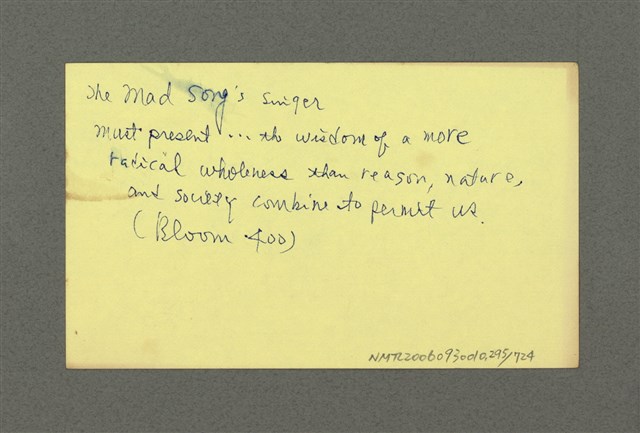 The Mad Song's Singer
must present ... the wisdom of a more
radical wholeness than reason, nature,
and society combine to permit us.
(Bloom 400)
NMTL20060930010,295/724